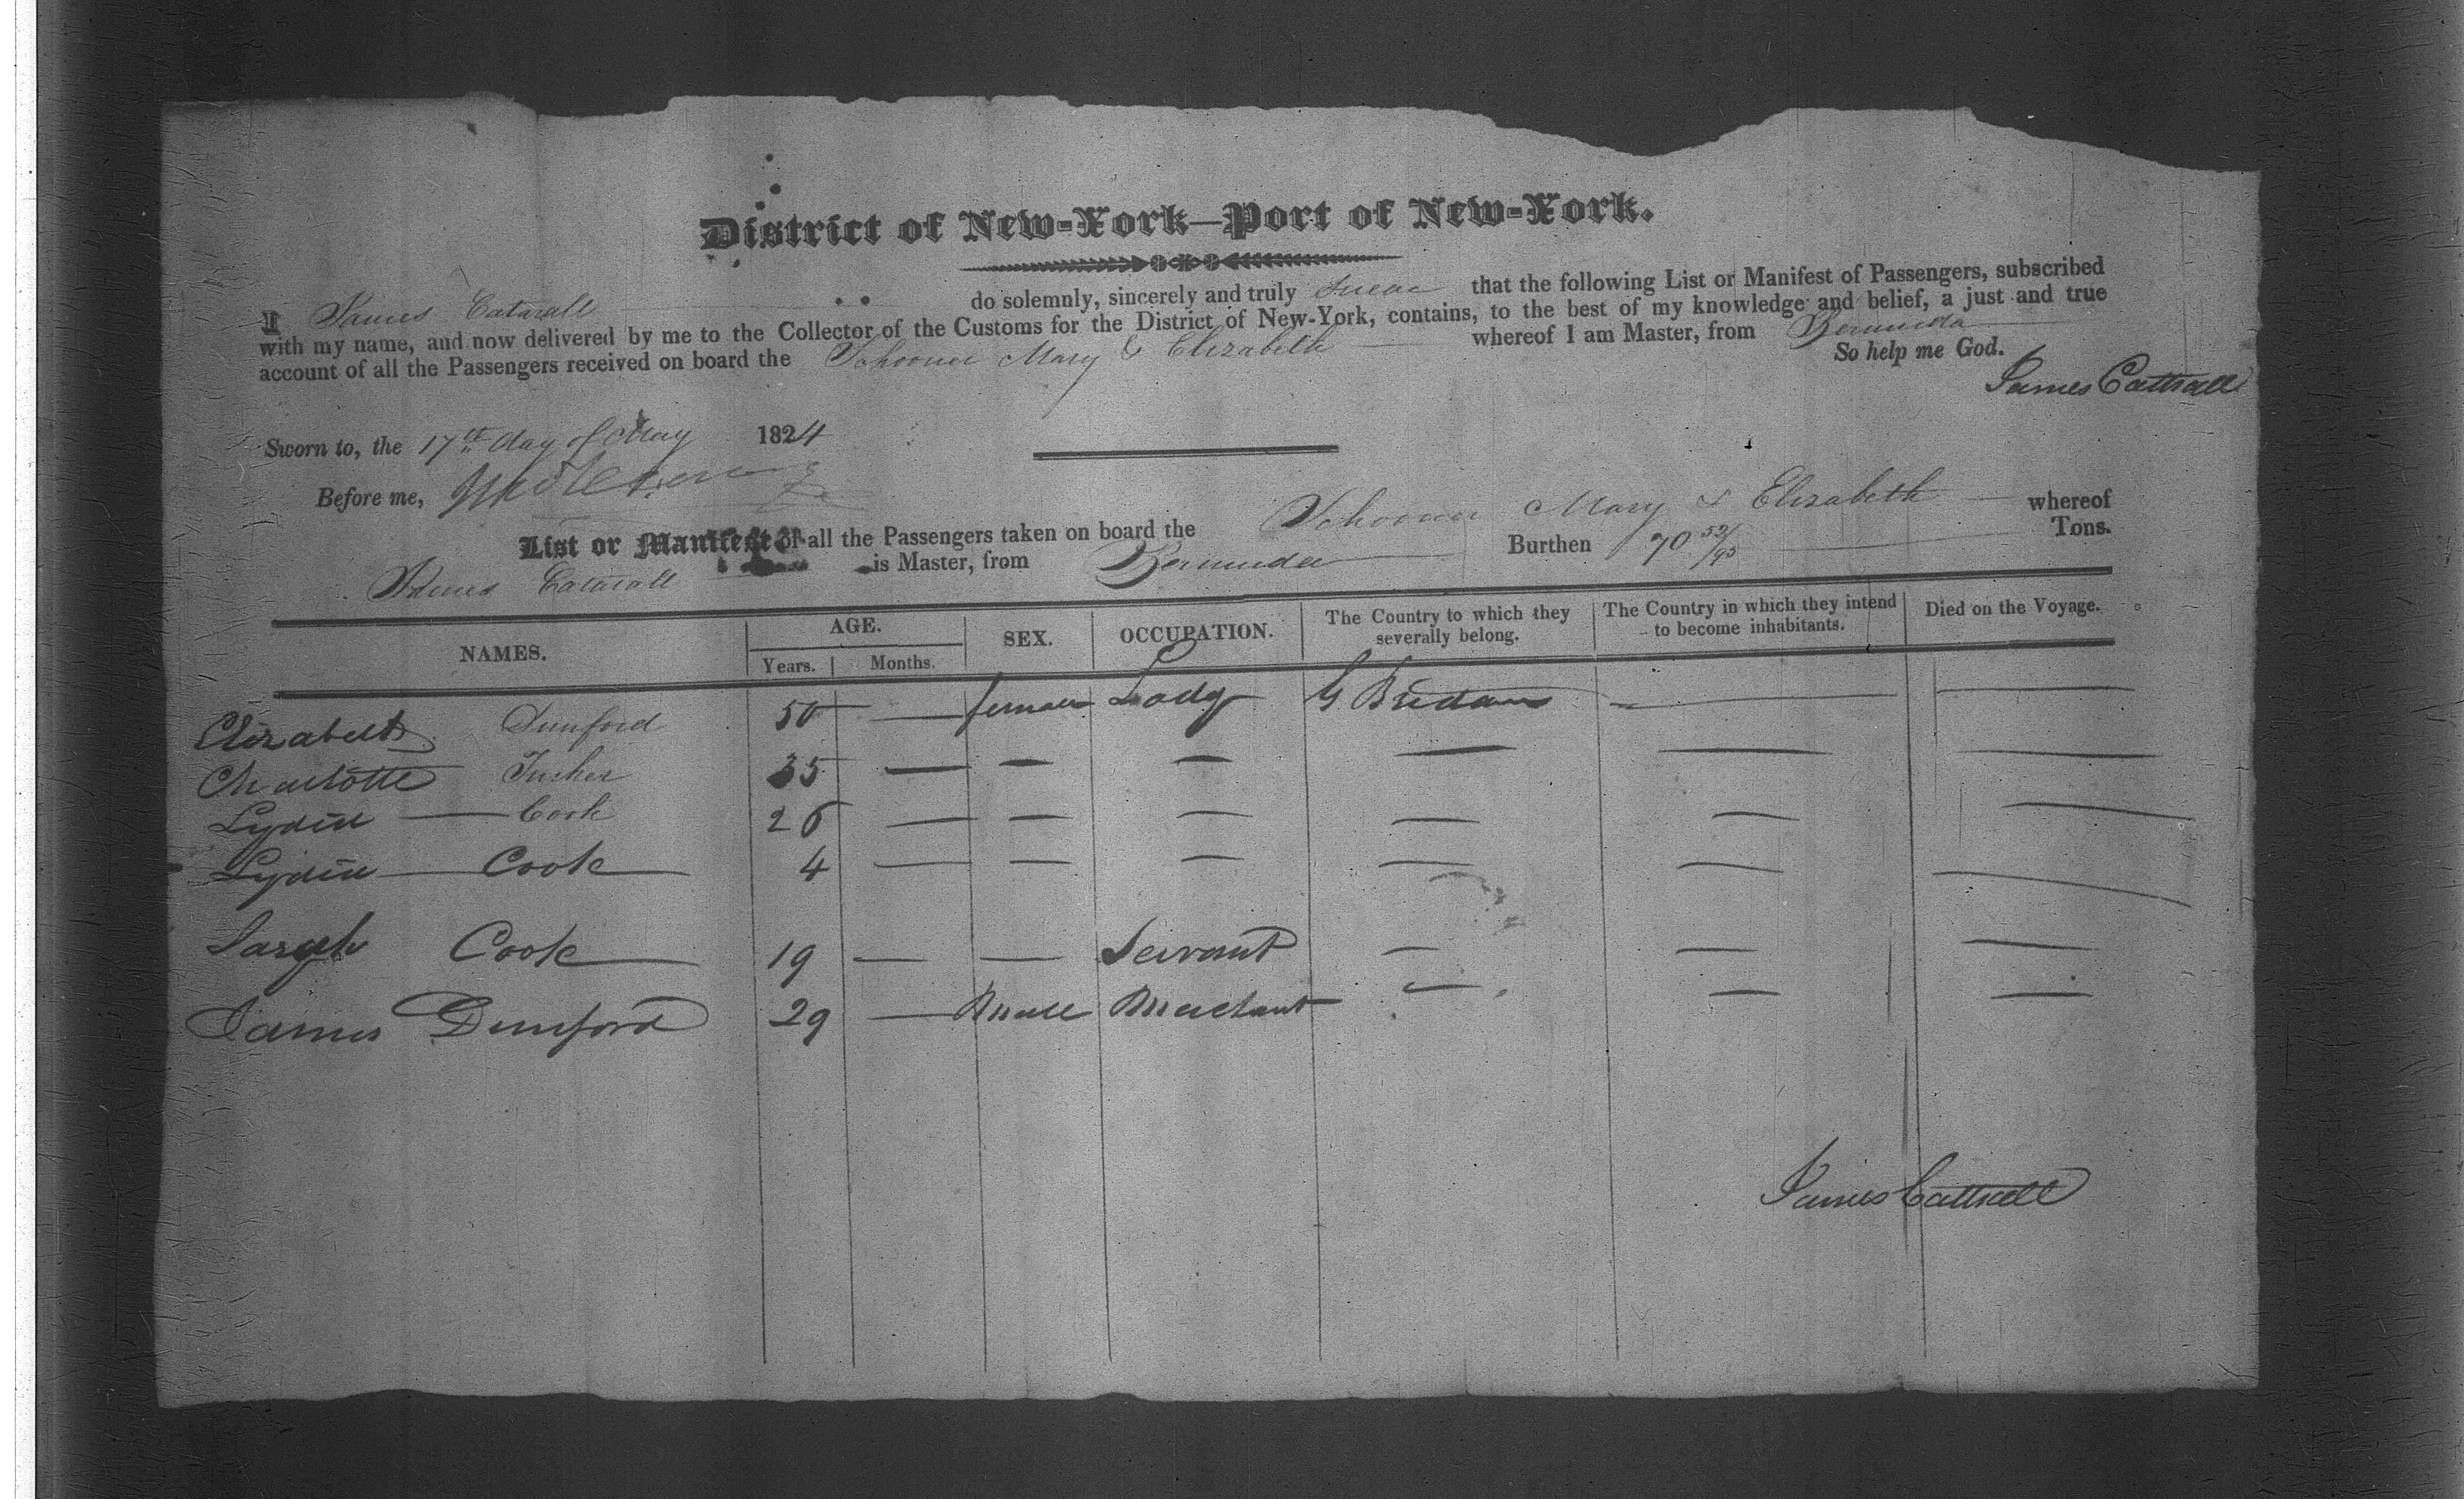 District of New-York—Port of New-York.
I James Catwall do solemnly, sincerely and truly Swear that the following List or Manifest of Passengers, subscribed
with my name, and now delivered by me to the Collector of the Customs for the District of New-York, contains, to the best of my knowledge and belief, a just and true
account of all the Passengers received on board the Schooner Mary & Elizabeth whereof I am Master, from Bermuda
So help me God.
James Cattrall
Sworn to, the 17th day of May 1824
Before me,
List or Manifest of all the Passengers taken on board the Schooner Mary & Elizabeth whereof
James Catwall is Master, from Bermuda Burthen 70 52/95 Tons.
NAMES. AGE. SEX. OCCUPATION. The Country to which they severally belong. The Country in which they intend to become inhabitants. Died on the Voyage.
Years. Months.
Elizabeth Dunford 50 — female Lady G Britain — —
Charlotte Tucker 35 — — — — — —
Lydia — Cook 26 — — — — — —
Lydia — Cook 4 — — — — — —
Cook 19 — — Servant — — —
James Dunford 29 — Male Merchant — — —
James Cattrall